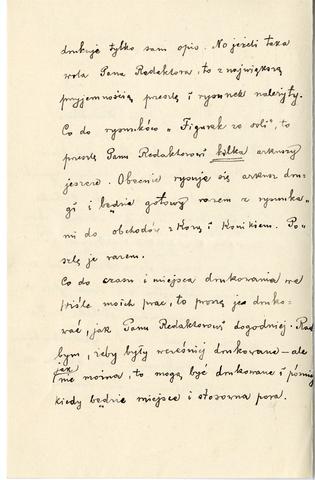 drukuje tylko sam opis. No jeżeli taka
wola Pana Redaktora, to z największą
przyjemnością przeszlę i rysunek należyty.
Co do rysunków „Figurek ze soli", to
przeszlę Panu Redaktorowi kilka arkuszy
jeszcze. Obecnie rysuje się arkusz dru-
gi i będzie gotowy razem z rysunka-
mi do obchodów z Kozą i Konikiem. Po-
szlę je razem.
Co do czasu i miejsca drukowania we
Wiśle moich prac, to proszę jeo druko-
wać, jak Panu Redaktorowi dogodniej. Rad
bym, żeby były wcześniej drukowane – ale
jak
nie można, to mogą być drukowane i później
kiedy będzie miejsce i stosowna pora.